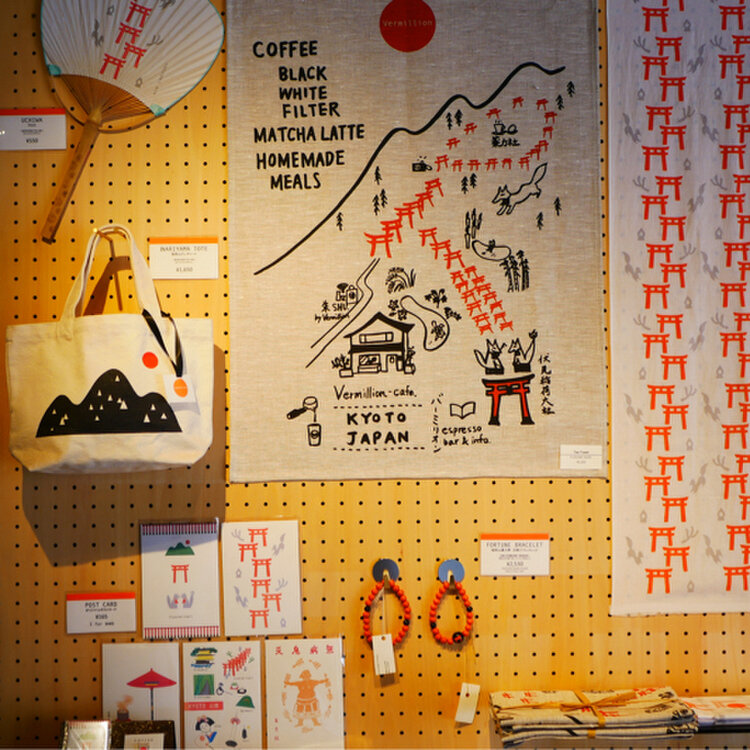 Vermillion
COFFEE
BLACK
WHITE
FILTER
MATCHA LATTE
HOMEMADE
MEALS
UCHIWA
¥550
INARIYAMA TOTE
¥1,650
SHU
by Vermillion
Vermillion-cafe.
KYOTO
JAPAN
バーミリオン
espresso
bar & info.
伏見稲荷大社
Tea Towel
FORTUNE BRACELET
¥2,550
POST CARD
¥165
KYOTO
無病息災